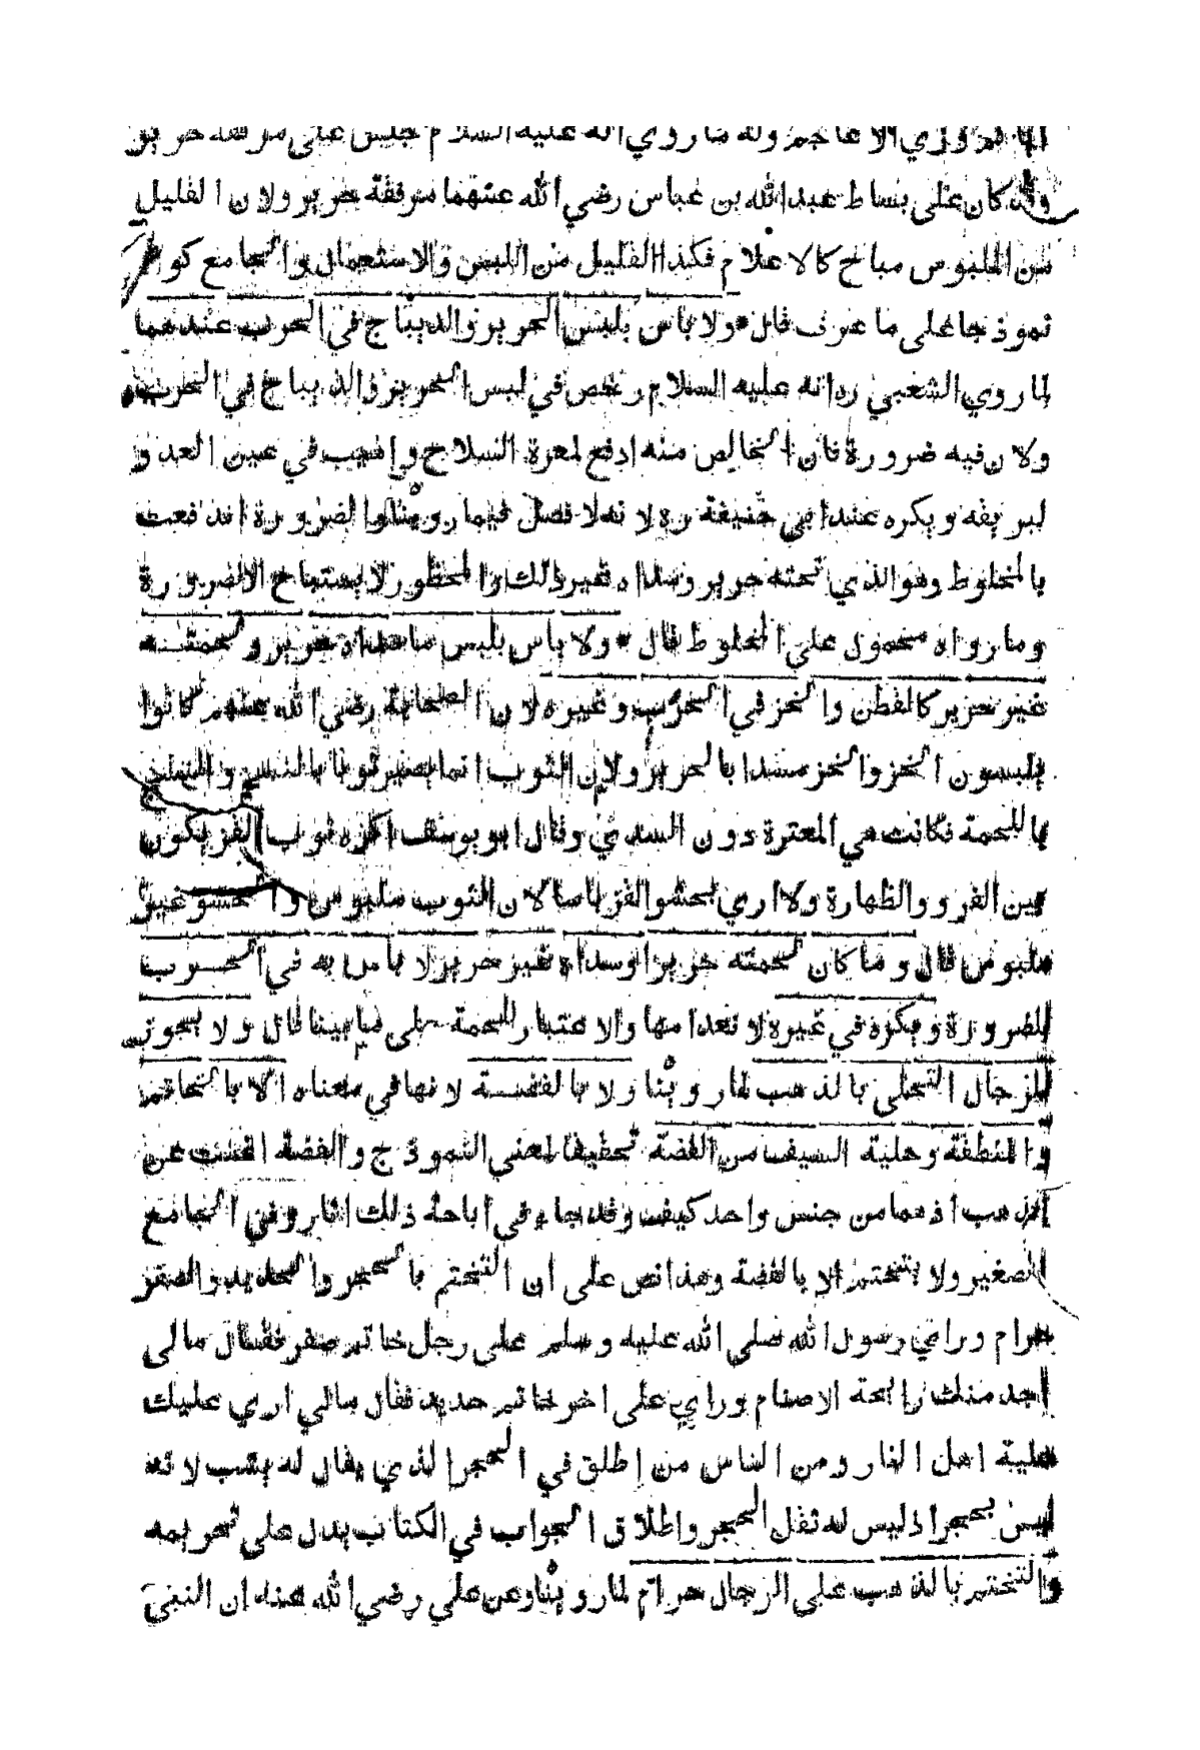 وزي الاعاجم وله ما روي انه عليه السلام جلس على مرفقة حرير
وقد كان على بساط عبد الله بن عباس رضي الله عنهما مرفقة حرير ولان القليل
من الملبوس مباح كالاعلام فكذا القليل من اللبس والاستعمال والجامع كونه
نموذجا على ما عرف قال ولا باس بلبس الحرير والديباج في الحرب عندهما
لما روي الشعبي ره انه عليه السلام رخص في لبس الحرير والديباج في الحرب
ولان فيه ضرورة فان الخالص منه ادفع لمعرة السلاح واهيب في عين العدو
لبريقه ويكره عند ابي حنيفة ره لانه لا فصل فيما روينا والضرورة اندفعت
بالمخلوط وهو الذي لحمته حرير وسداه غير ذلك والمحظور لا يستباح الا لضرورة
وما رواه محمول على المخلوط قال ولا باس بلبس ما سداه حرير ولحمته
غير حرير كالقطن والخز في الحرب وغيره لان الصحابة رضي الله عنهم كانوا
يلبسون الخز والخز مسدا بالحرير ولان الثوب انما يصير ثوبا بالنسج والنسج
باللحمة فكانت هي المعتبرة دون السدي وقال ابو يوسف اكره ثوب القز يكون
بين الفرو والظهارة ولا اري بحشو القز باسا لان الثوب ملبوس والحشو غير
ملبوس قال وما كان لحمته حريرا وسداه غير حرير لا باس به في الحرب
للضرورة ويكره في غيره لانعدامها والاعتبار للحمة على ما بينا قال ولا يجوز
للرجال التحلي بالذهب لما روينا ولا بالفضة لانها في معناه الا بالخاتم
والمنطقة وحلية السيف من الفضة تحقيقا لمعني النموذج والفضة اغنت عن
الذهب اذ هما من جنس واحد كيف وقد جاء في اباحة ذلك اثار وفي الجامع
الصغير ولا يتختم الا بالفضة وهذا نص على ان التختم بالحجر والحديد والصفر
حرام وراي رسول الله صلى الله عليه وسلم على رجل خاتم صفر فقال مالي
اجد منك رايحة الاصنام وراي على اخر خاتم حديد فقال مالي اري عليك
حلية اهل النار ومن الناس من اطلق في الحجر الذي يقال له يشب لانه
ليس بحجر اذ ليس له ثقل الحجر واطلاق الجواب في الكتاب يدل على تحريمه
والتختم بالذهب على الرجال حرام لما روينا وعن علي رضي الله عنه ان النبي